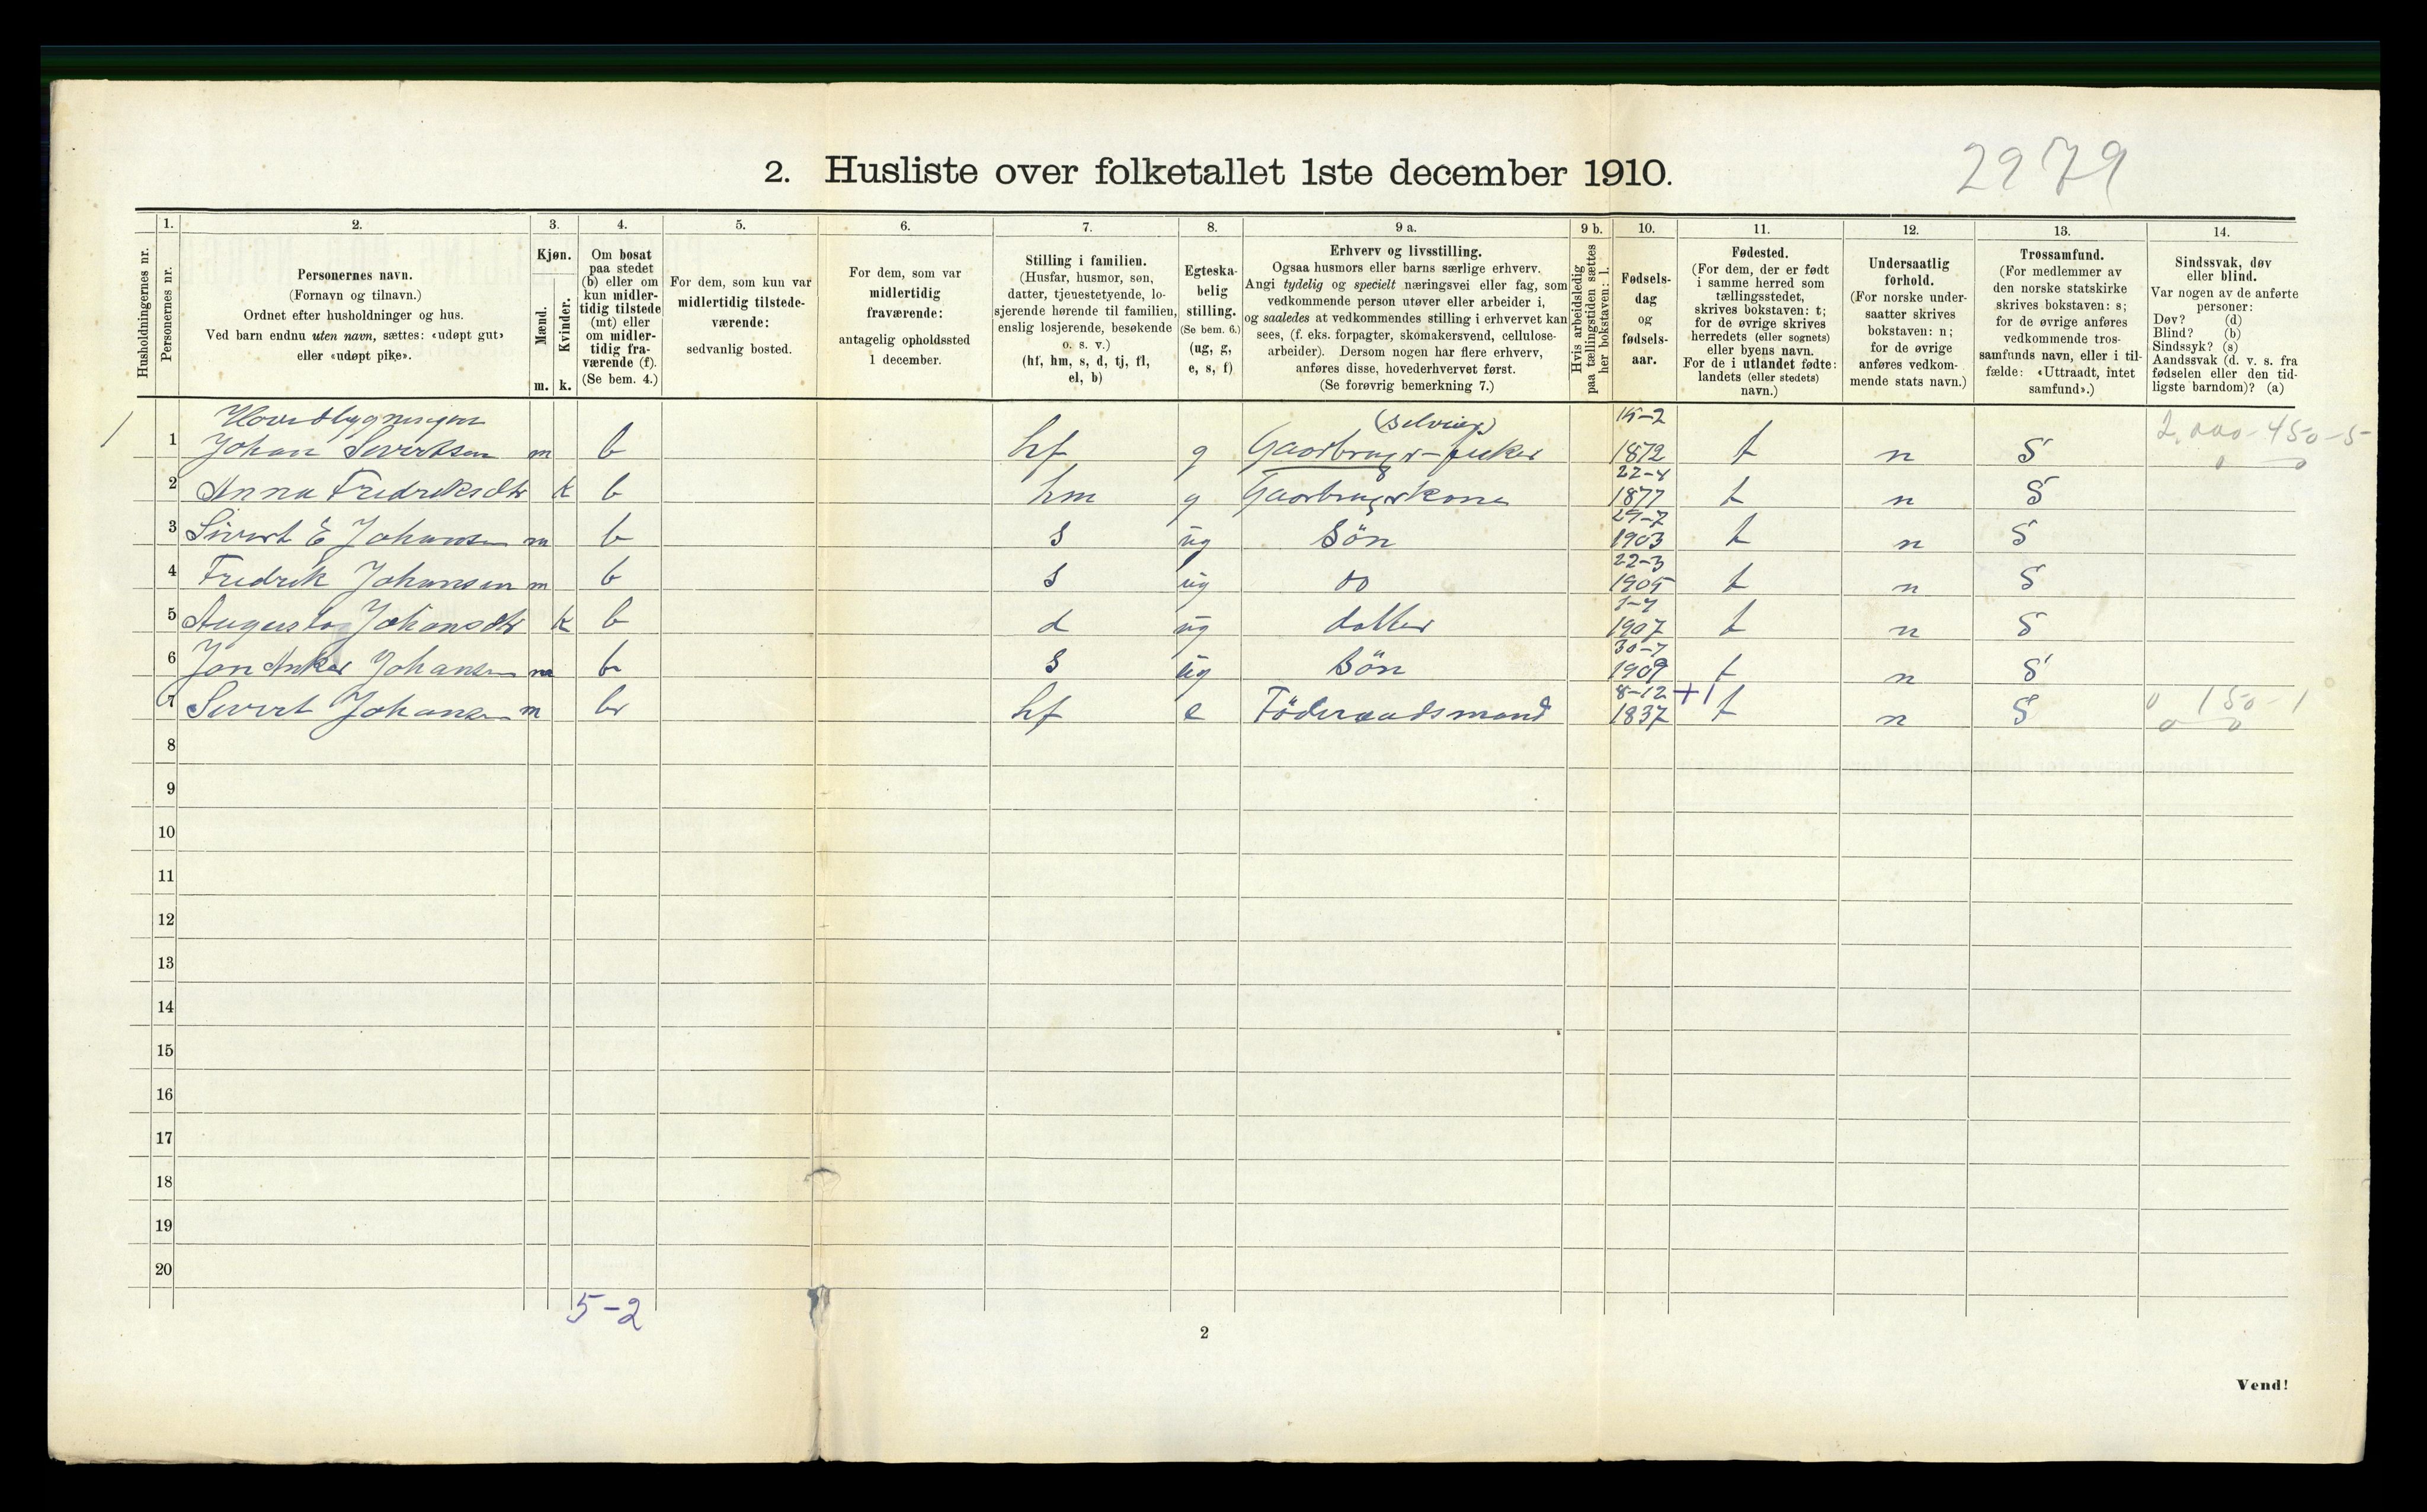 2979
2. Husliste over folketallet 1ste december 1910.
Husholdningernes nr.
1.
Personernes nr.
2.
Personernes navn.
(Fornavn og tilnavn.)
Ordnet efter husholdninger og hus.
Ved barn endnu uten navn, sættes: «udøpt gut»
eller «udøpt pike».
3.
Kjøn.
Mænd.
m.
Kvinder.
k.
4.
Om bosat
paa stedet
(b) eller om
kun midler-
tidig tilstede
(mt) eller
om midler-
tidig fra-
værende (f).
(Se bem. 4.)
5.
For dem, som kun var
midlertidig tilstede-
værende:
sedvanlig bosted.
6.
For dem, som var
midlertidig
fraværende:
antagelig opholdssted
1 december.
7.
Stilling i familien.
(Husfar, husmor, søn,
datter, tjenestetyende, lo-
sjerende hørende til familien,
enslig losjerende, besøkende
o. s. v.)
(hf, hm, s, d, tj, fl,
el, b)
8.
Egteska-
belig
stilling.
(Se bem. 6.)
(ug, g,
e, s, f)
9 a.
Erhverv og livsstilling.
Ogsaa husmors eller barns særlige erhverv.
Angi tydelig og specielt næringsvei eller fag, som
vedkommende person utøver eller arbeider i,
og saaledes at vedkommendes stilling i erhvervet kan
sees, (f. eks. forpagter, skomakersvend, cellulose-
arbeider). Dersom nogen har flere erhverv,
anføres disse, hovederhvervet først.
(Se forøvrig bemerkning 7.)
9 b.
Hvis arbeidsledig
paa tællingstiden sættes
her bokstaven: l.
10.
Fødsels-
dag
og
fødsels-
aar.
11.
Fødested.
(For dem, der er født
i samme herred som
tællingsstedet,
skrives bokstaven: t;
for de øvrige skrives
herredets (eller sognets)
eller byens navn.
For de i utlandet fødte:
landets (eller stedets)
navn.)
12.
Undersaatlig
forhold.
(For norske under-
saatter skrives
bokstaven: n;
for de øvrige
anføres vedkom-
mende stats navn.)
13.
Trossamfund.
(For medlemmer av
den norske statskirke
skrives bokstaven: s;
for de øvrige anføres
vedkommende tros-
samfunds navn, eller i til-
fælde: «Uttraadt, intet
samfund».)
14.
Sindssvak, døv
eller blind.
Var nogen av de anførte
personer:
Døv? (d)
Blind? (b)
Sindssyk? (s)
Aandssvak (d. v. s. fra
fødselen eller den tid-
ligste barndom)? (a)
Hovedbygningen (selveier) 15-2 2.000-450-5
1 Johan Sivertsen m b hf g Gaardbruger-fisker 1872 t n S 0 0
22-4
2 Anna Fredriksdtr k b hm g Gaardbrugerkone 1877 t n S
29-7
3 Sivert E Johansen m b s ug Sön 1903 t n S
22-3
4 Fredrik Johansen m b s ug do 1905 t n S
1-7
5 Augusta Johansdtr k b d ug datter 1907 t n S
30-7
6 Jon Anker Johansen m b s ug Sön 1909 t n S
8-12 +1 0 150-1
7 Sivert Johansen m b hf e Föderaadsmand 1837 t n S 0 0
8
9
10
11
12
13
14
15
16
17
18
19
20
5-2
2
Vend!